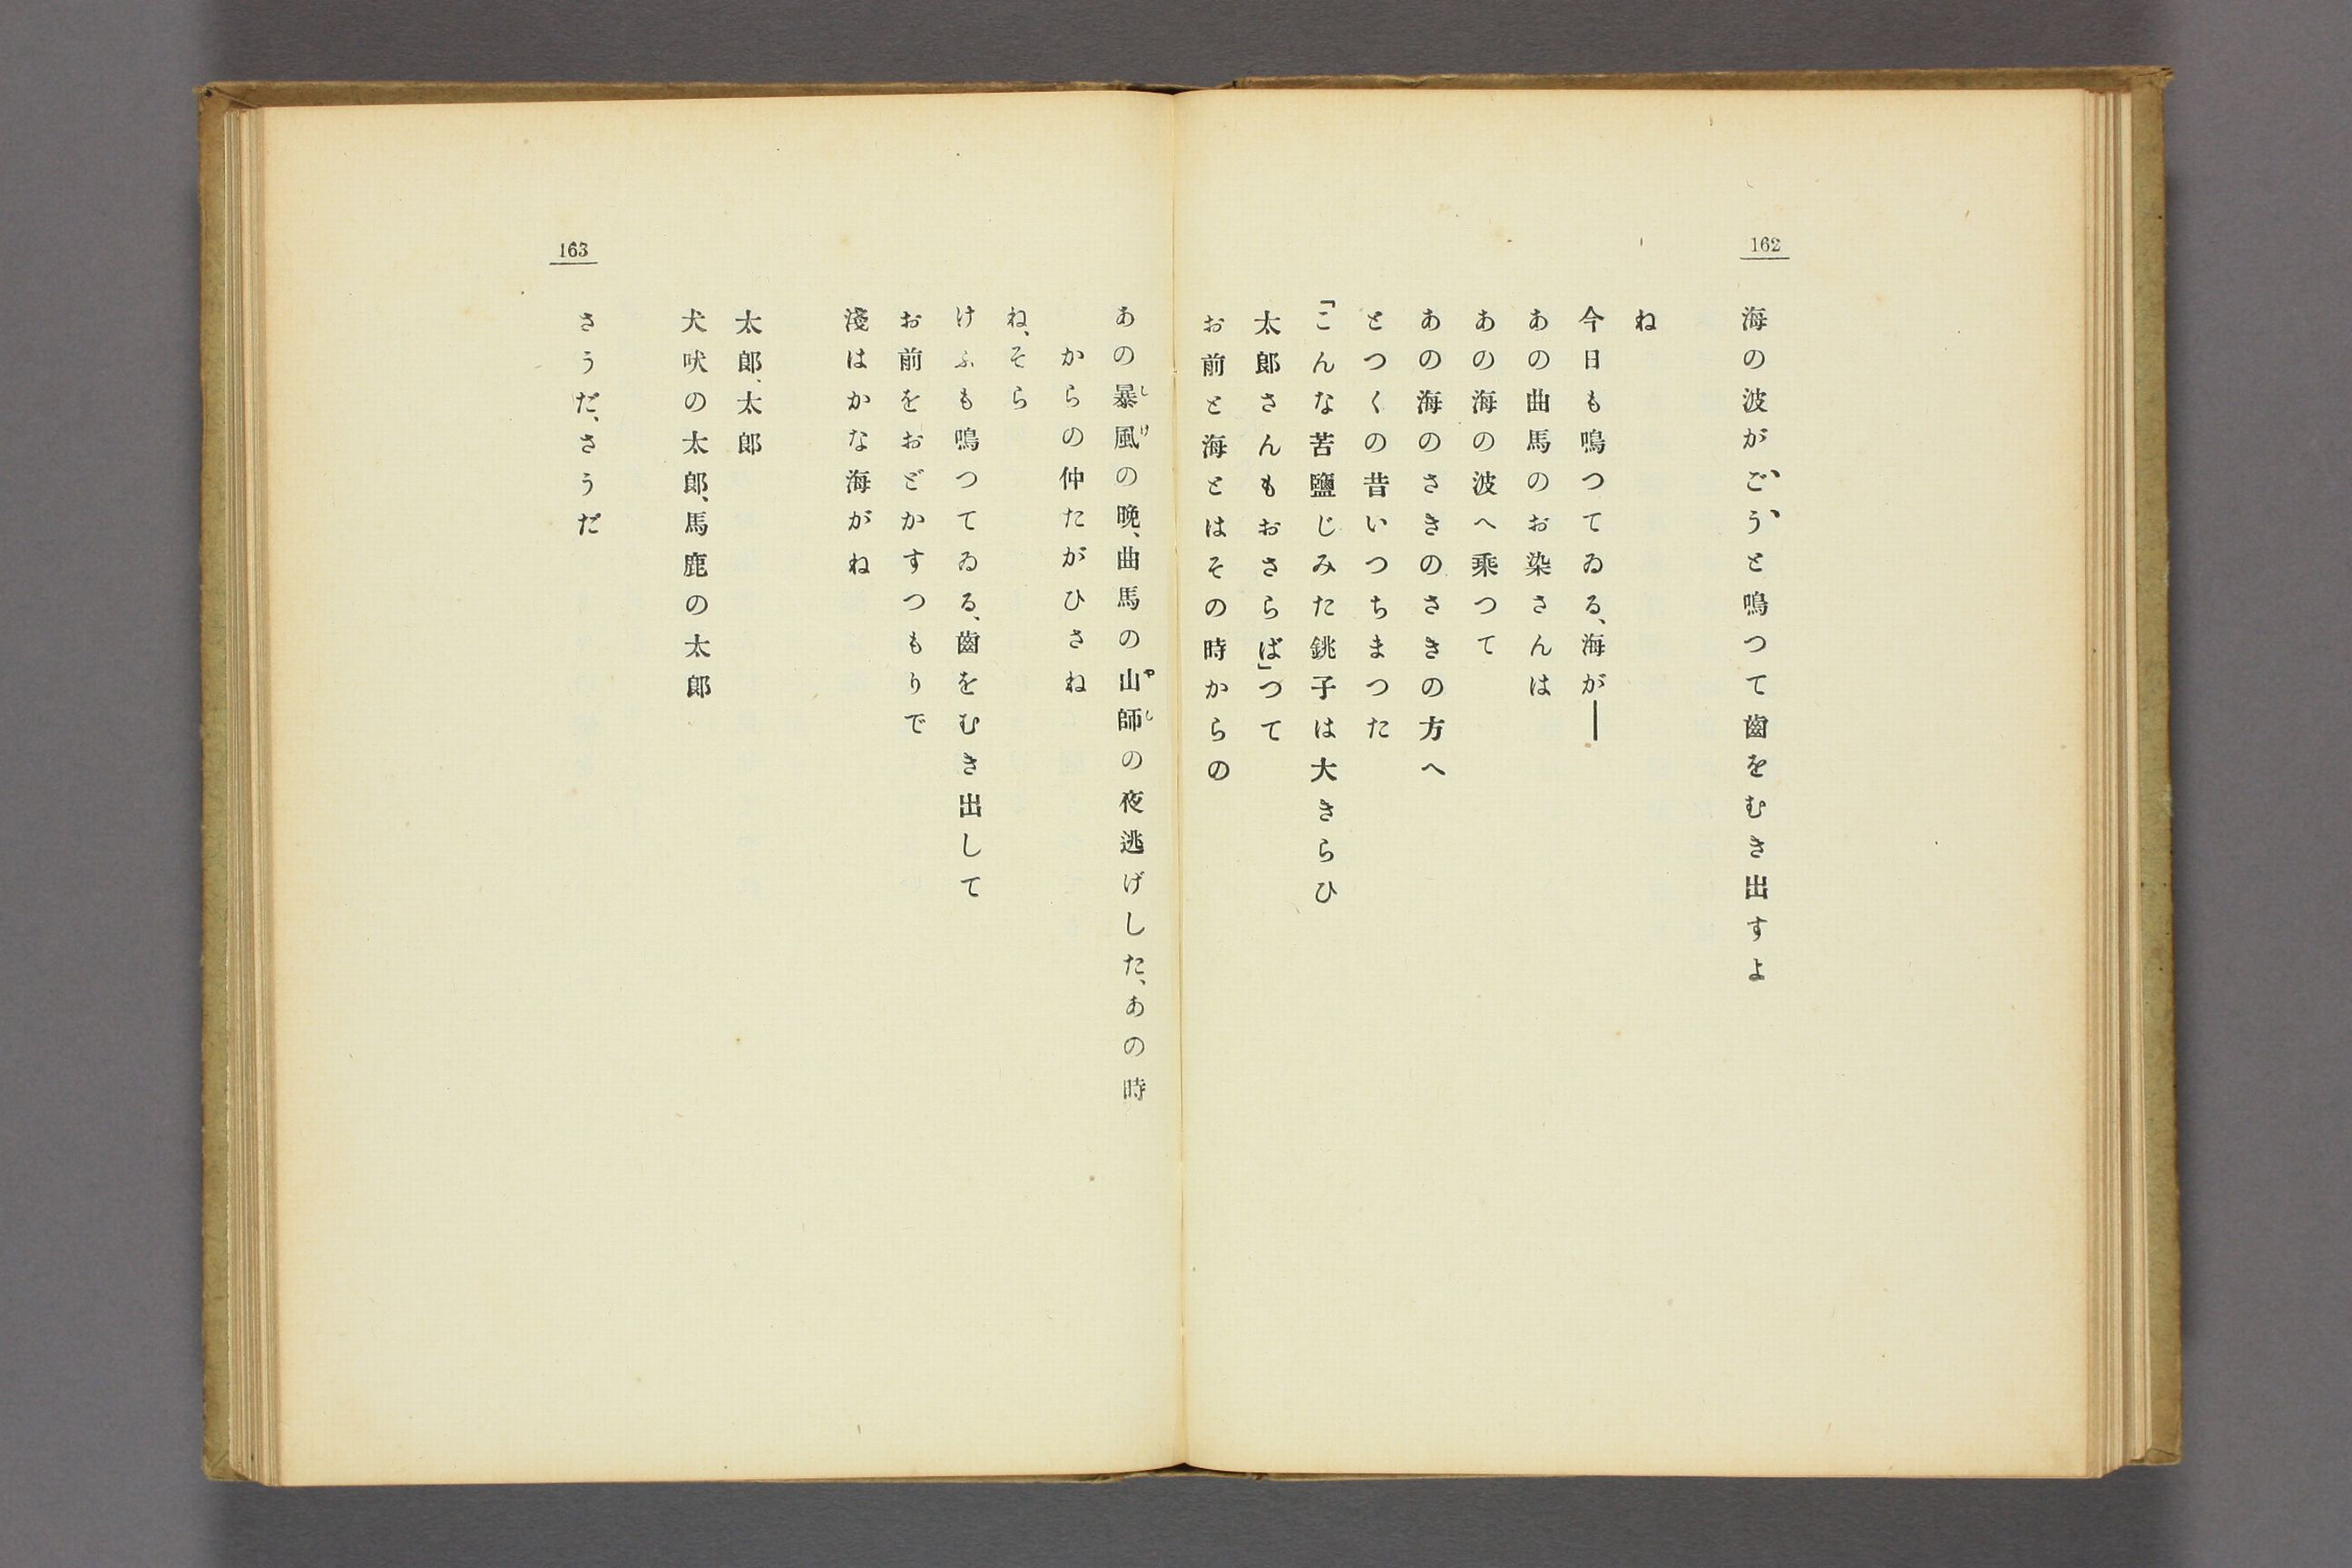 162
海の波がごうと鳴つて齒をむき出すよ
ね
今日も鳴つてゐる、海が――
あの曲馬のお染さんは
あの海の波へ乘つて
あの海のさきのさきの方へ
とつくの昔いつちまつた
「こんな苦鹽じみた銚子は大きらひ
太郎さんもおさらば」つて
お前と海とはその時からの
163
あの暴風の晩、曲馬の山師の夜逃げした、あの時
しけ
やし
からの仲たがひさね
ね、そら
けふも鳴つてゐる、齒をむき出して
お前をおどかすつもりで
淺はかな海がね
太郎、太郎
犬吠の太郎、馬鹿の太郎
さうだ、さうだ